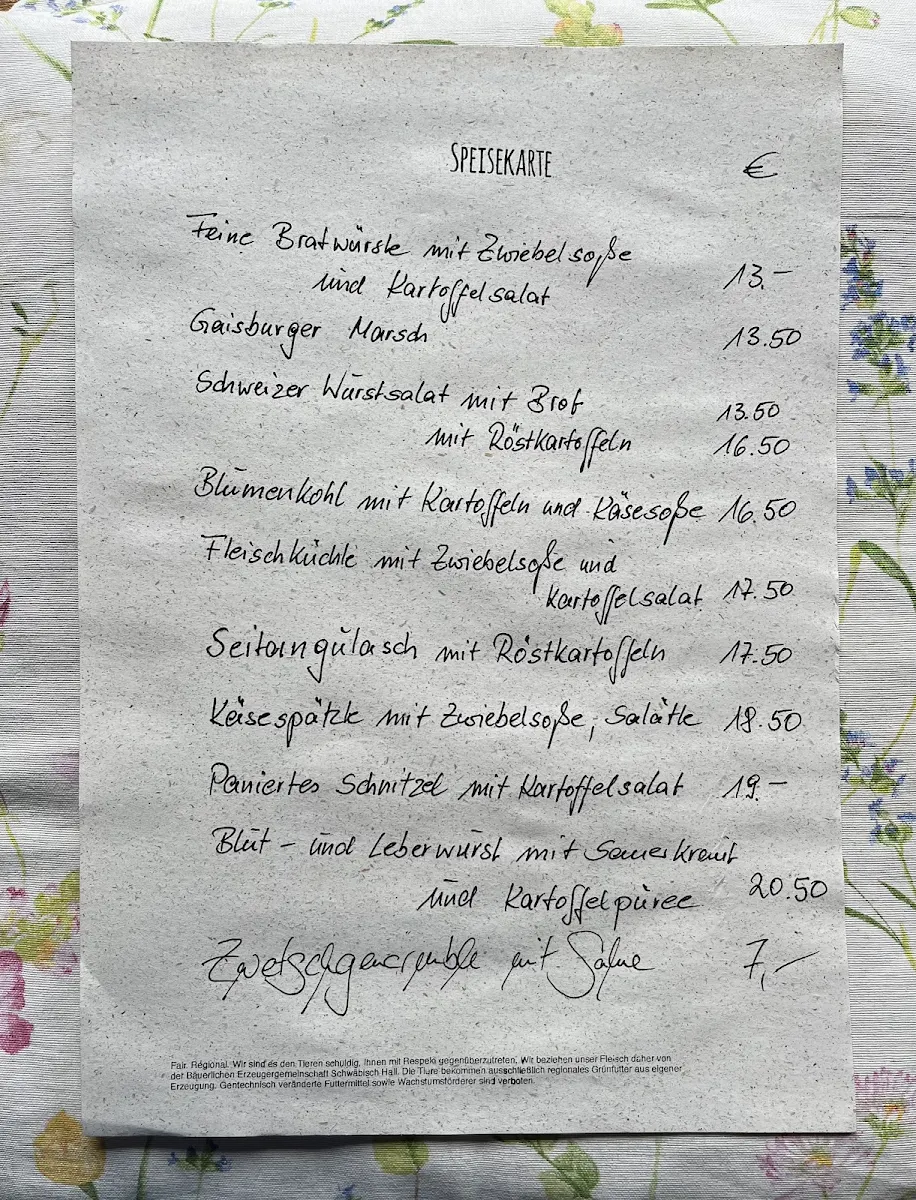 SPEISEKARTE €
Feine Bratwürste mit Zwiebelsoße
und Kartoffelsalat 13.–
Gaisburger Marsch 13.50
Schweizer Wurstsalat mit Brot 13.50
mit Röstkartoffeln 16.50
Blumenkohl mit Kartoffeln und Käsesoße 16.50
Fleischküchle mit Zwiebelsoße und
Kartoffelsalat 17.50
Seitangulasch mit Röstkartoffeln 17.50
Käsespätzle mit Zwiebelsoße, Salätle 18.50
Paniertes Schnitzel mit Kartoffelsalat 19.–
Blut- und Leberwurst mit Sauerkraut
und Kartoffelpüree 20.50
Zwetschgencrumble mit Sahne 7,–
Fair. Regional. Wir sind es den Tieren schuldig, Ihnen mit Respekt gegenüberzutreten. Wir beziehen unser Fleisch daher von
der Bäuerlichen Erzeugergemeinschaft Schwäbisch Hall. Die Tiere bekommen ausschließlich regionales Grünfutter aus eigener
Erzeugung. Gentechnisch veränderte Futtermittel sowie Wachstumsförderer sind verboten.